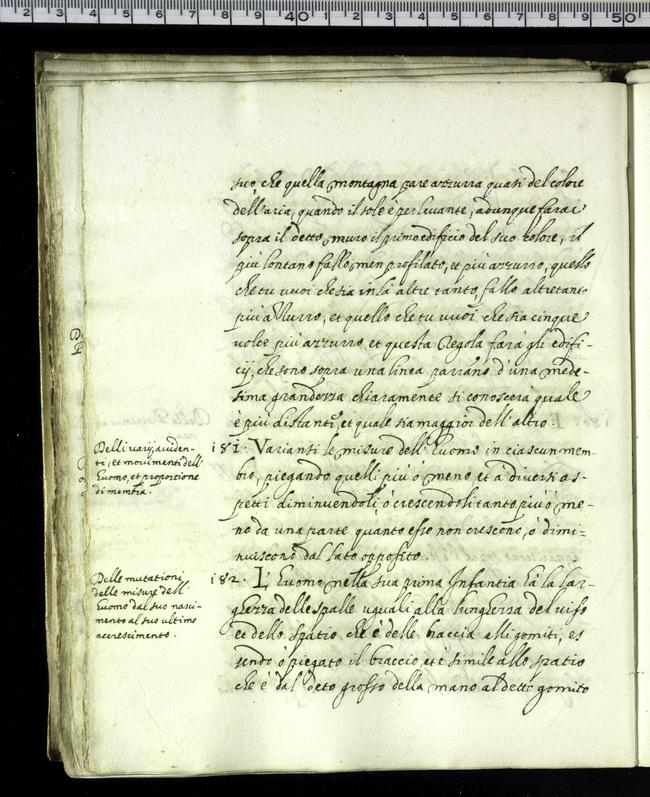 suo, che quella montagna pare azzurra quasi del colore
dell'aria, quando il sole è per levante, adunque farai
sopra il detto muro il primo edificio del suo colore, il
più lontano fallo men profilato, et più azzurro, quello
che tu vuoi che sia in là altre tanto, fallo altretanto
più azzurro, et quello che tu vuoi che sia cinque
volte più azzurro, et questa Regola farà gli edifi-
cij, che sono sopra una linea parrano d'una mede-
sima grandezza chiaramente si conoscerà quale
è più distante, et quale sia maggior dell'altro.
Delli varij acciden-
ti, et movimenti dell'
huomo, et proportione
di membra.
181. Varianti le misure dell'huomo in ciascun mem-
bro, piegando quelli più ò meno, et a diversi as-
petti diminuendoli ò crescendoli tanto più ò me-
no da una parte quanto esse non crescono, ò dimi-
nuiscono dal lato opposito.
Delle mutationi
delle misure dell'
huomo dal suo nasci-
mento al suo ultimo
accrescimento.
182. L'huomo nella sua prima Infantia hà la lar-
ghezza delle spalle uguali alla lunghezza del viso
et dello spatio che è delle braccia alli gomiti, es
sendo ò piegato il braccio, et è simile allo spatio
che è dal deto grosso della mano al detto gomito
40
50